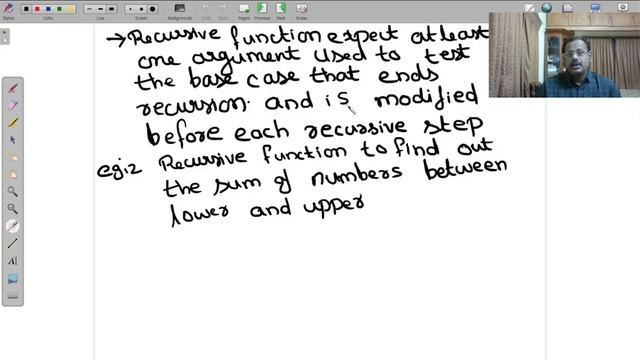 Stylus
Color
Medium
Eraser
Backgrounds
Undo
Redo
Pages
Previous
Next
Erase
→ Recursive function expect at least
one argument used to test
the base case that ends
recursion. and is modified
before each recursive step
eg:2 Recursive function to find out
the sum of numbers between
lower and upper